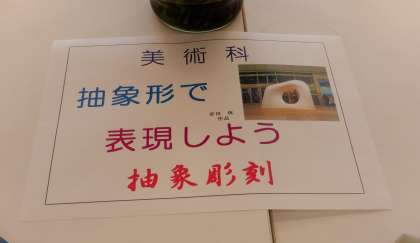 美術科
抽象形で
作品
表現しよう
抽象彫刻